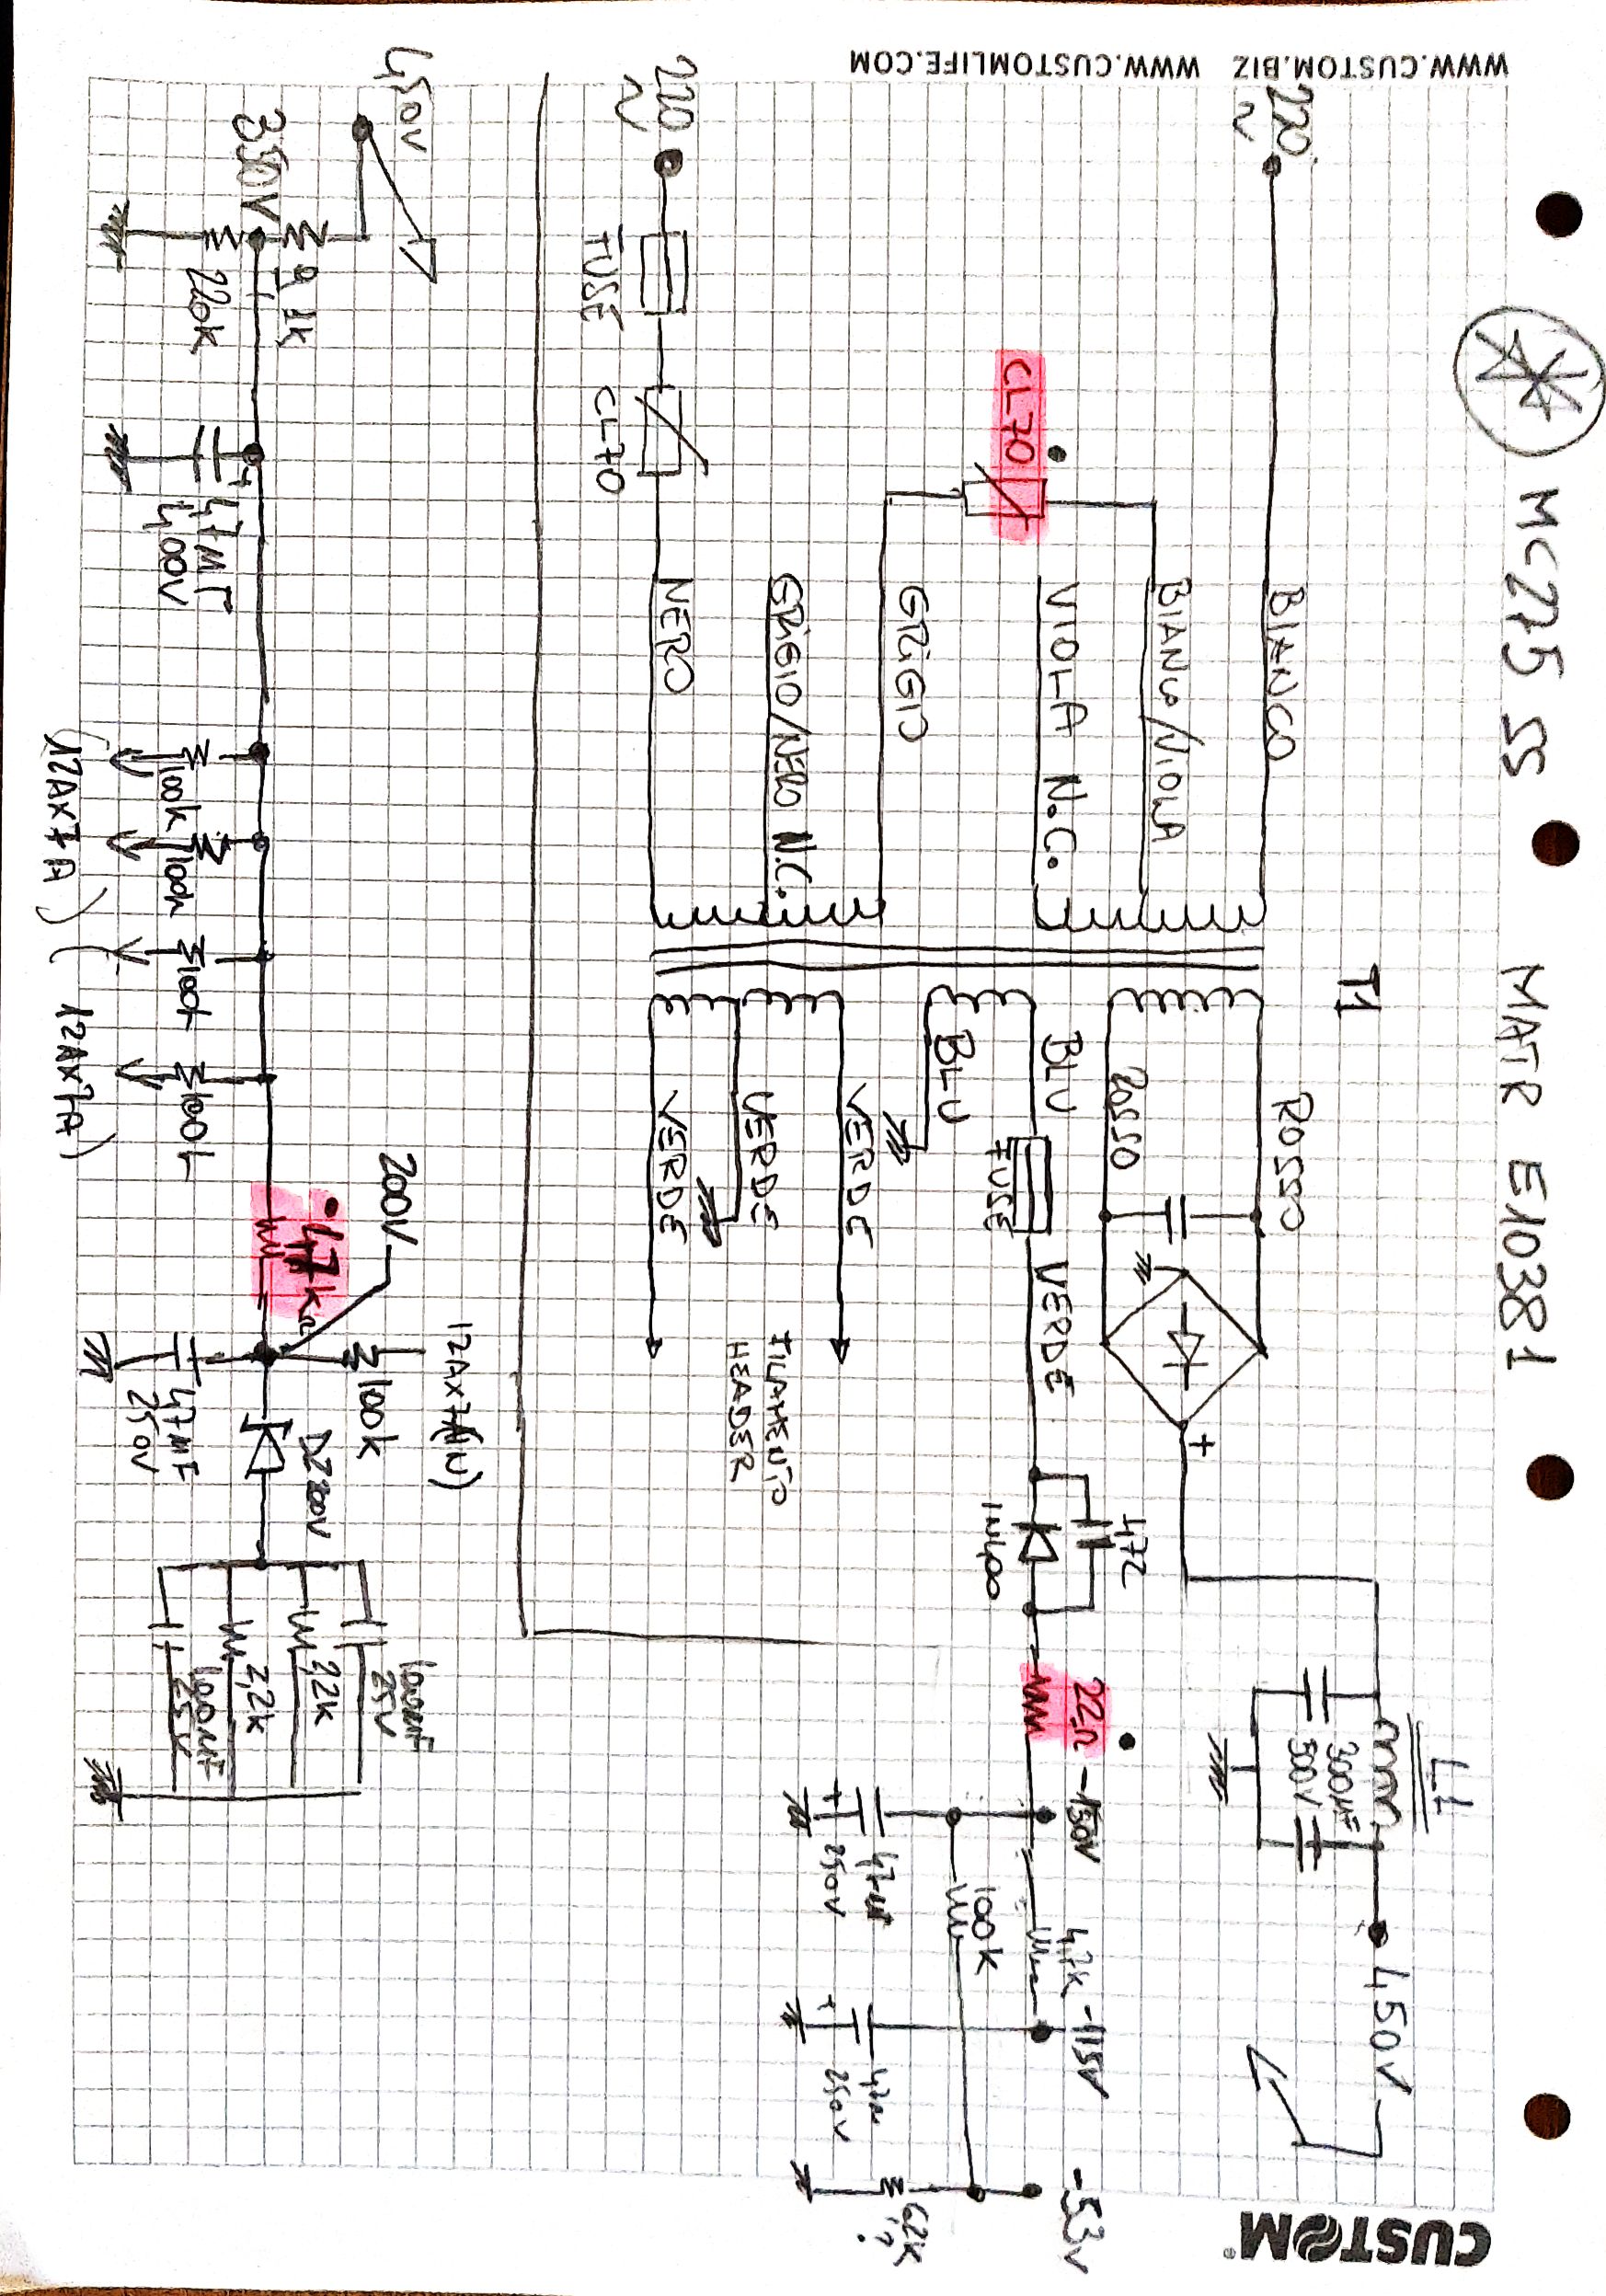 WWW.CUSTOM.BIZ WWW.CUSTOMLIFE.COM
CUSTOM
MC275 SS MATR E10381
T1
220
~
BIANCO
ROSSO
BIANCO/VIOLA
ROSSO
+
L1
300µF
500V
450V
CL70
VIOLA N.C.
BLU
FUSE
VERDE
472
1N400
22Ω
-150V
4,7K
-115V
-53V
GRIGIO
BLU
100K
47µF
250V
250V
62K
?
GRIGIO/NERO N.C.
VERDE
VERDE
FILAMENTO
HEADER
220
~
FUSE
CL70
NERO
VERDE
450V
350V
9,1K
220K
47MF
400V
100K
100K
100K
100K
(12AX7A)
(12AX7A)
47K
200V
12AX7A(IN)
100K
47MF
250V
DZ200V
100MF
25V
2,2K
2,2K
100MF
25V